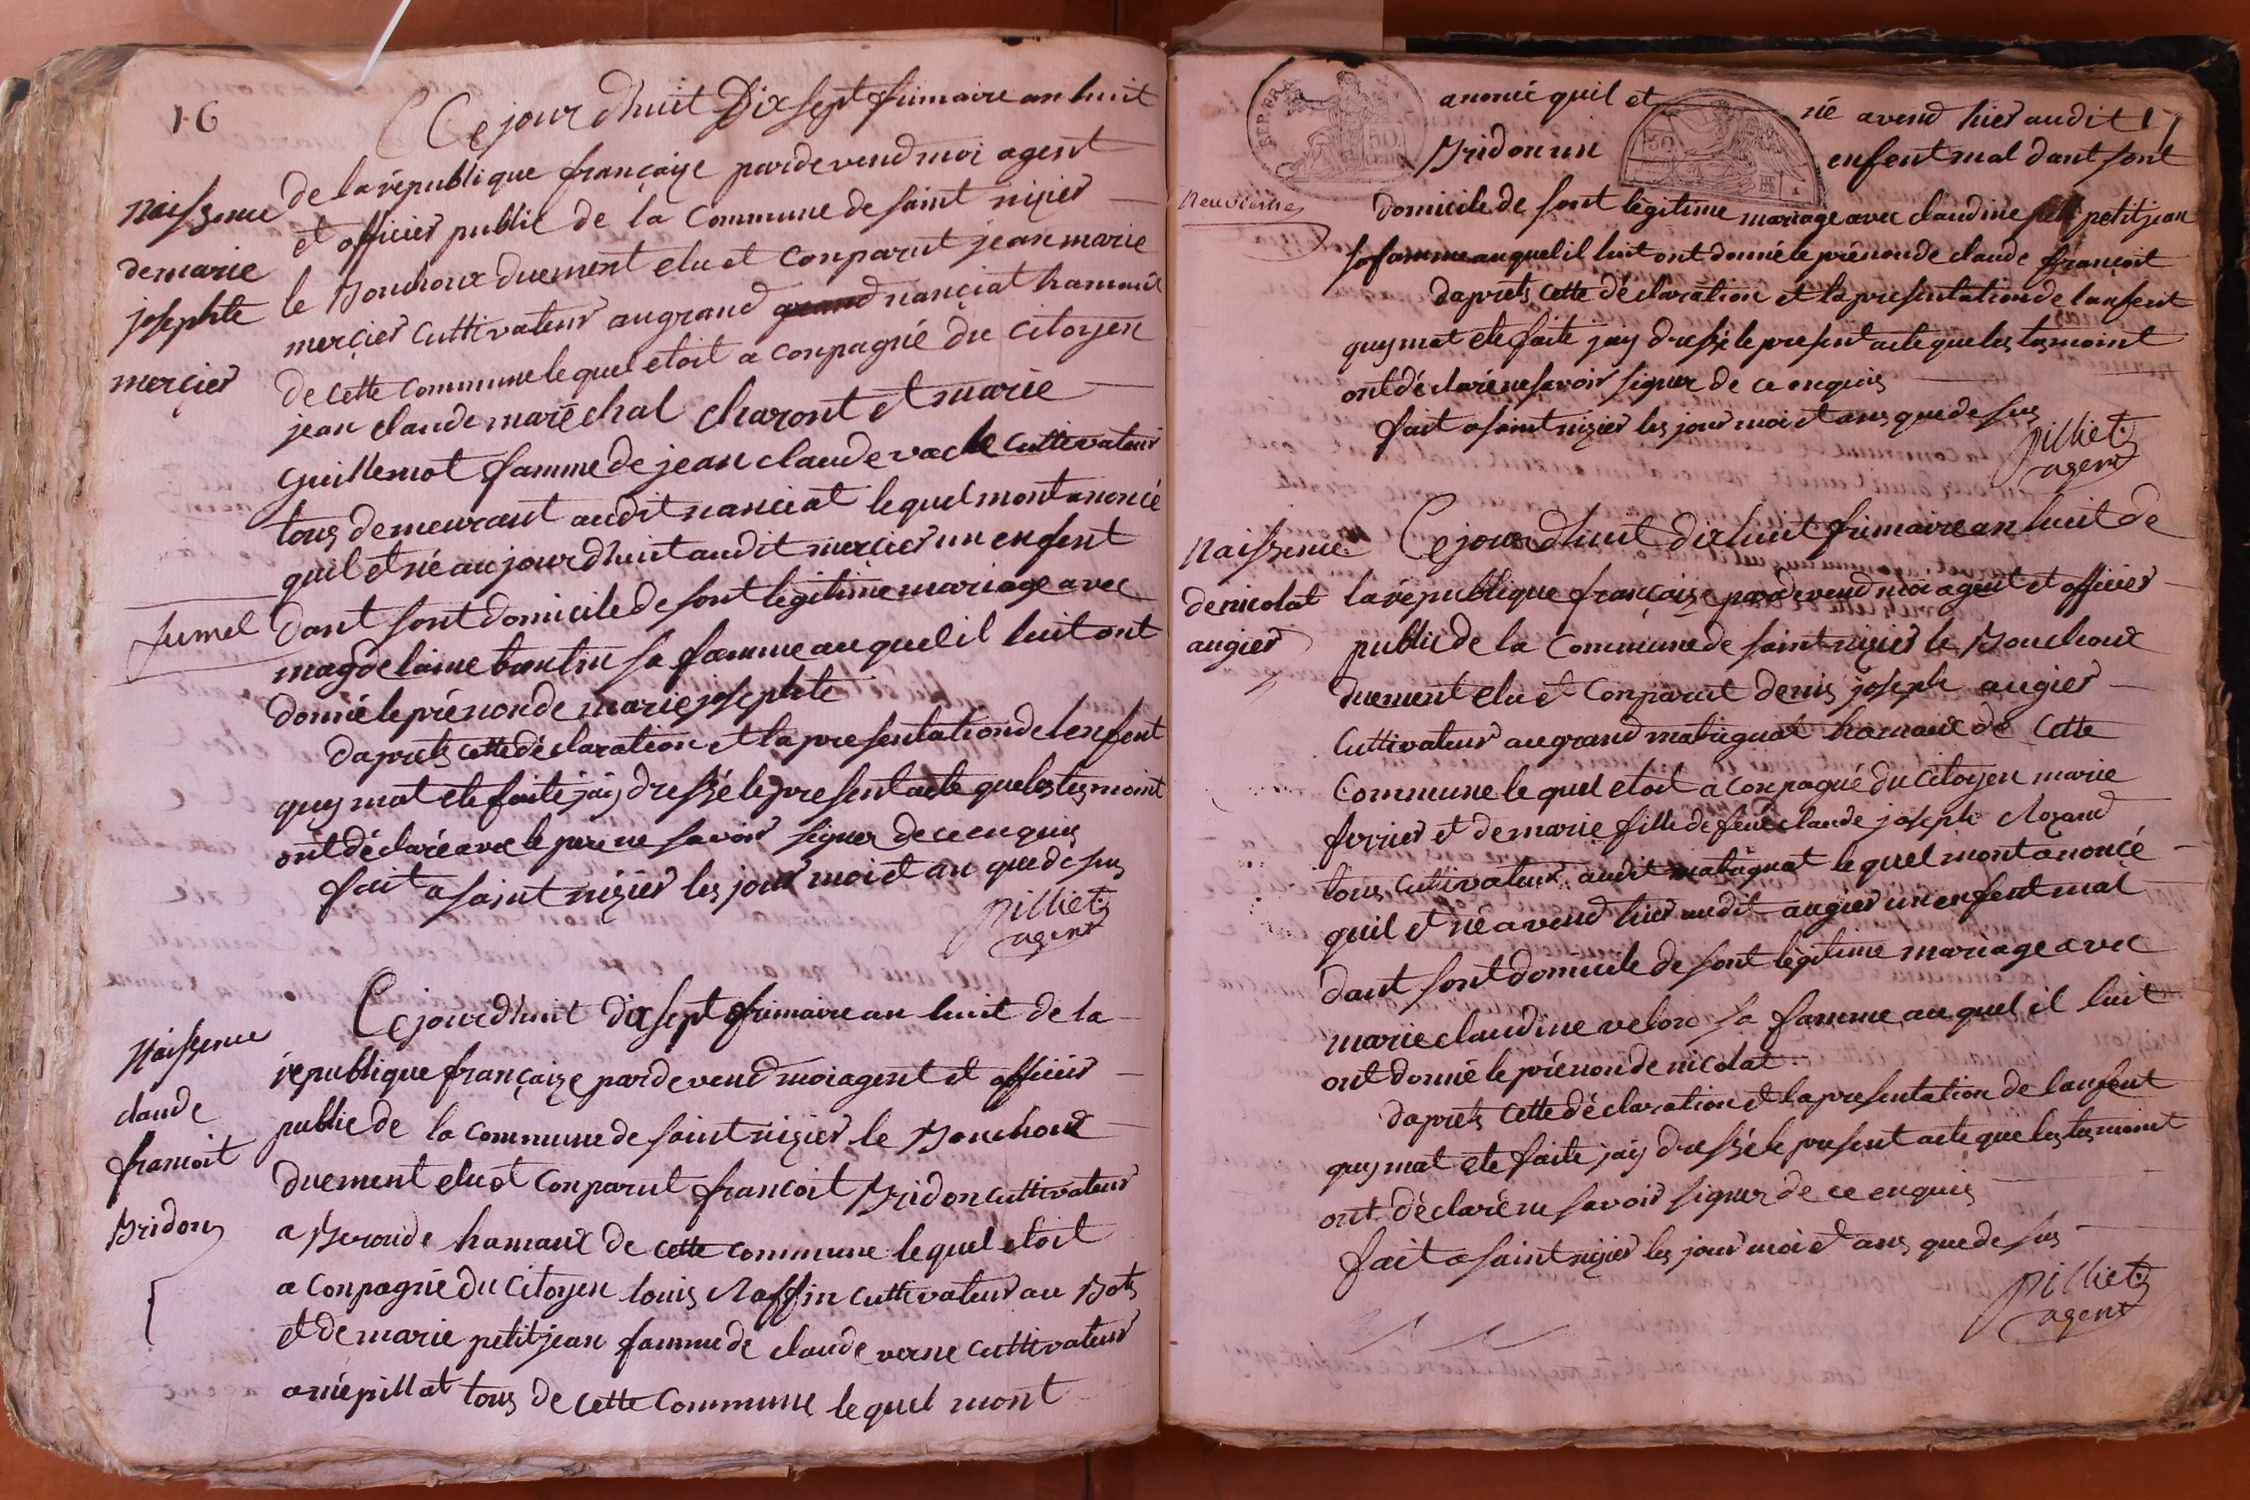 16
Ce jour dhuit Dix sept frimaire an huit
de la république françaize pardevend moi agent
et officier public de la Commune de saint nizier
le Bouchoux duement elu et Conparut jean marie
merçier Cuttivateur au grand nanciat hamaux
de cette commune le quel etoit a conpagné du Citoyen
jean claude maréchal charont et marie
Guillemot famme de jean claude vacle cuttivateur
tous demeurant audit nanciat lequel mont anoncé
quil et né aujourdhuit audit mercier un enfent
dant sont domicile de sont légitime mariage avec
magdelaine sa famme auquel il luit ont
donné le prénon de marie josephte
daprets cette déclaration et la presentation de lenfent
quy mat ete faite jaiy dressé le present acte que les tesmoint
ont déclaré avec le pere ne savoir signer de ce enquis
fait a saint nizier les jour moi et an que de sus
pilliet
agent
naissence
de marie
josephte
merçier
fumel
Ce jourdhuit dix sept frimaire an huit de la
république françaize pardevend moi agent et officier
public de la commune de saint nizier le Bouchoux
duement elu et Conparut francoit Bridon cuttivateur
a Beroude hamaux de cette commune lequel etoit
a conpagné du Citoyen louis Raffin cuttivateur au Bots
et de marie petitjean famme de claude verne cuttivateur
a mépillat tous de cette Commune lequel mont
Naissence
claude
francoit
Bridon
17
anoncé quil et né avend hier audit
Bridon un enfent mal dant sont
domicile de sont légitime mariage avec claudine petitjean
sa famme auquel il luit ont donné le prénon de claude francoit
daprets cette déclaration et la presentation de lanfent
quy mat ete faite jaiy dressé le present acte que les tesmoint
ont déclaré ne savoir signer de ce enquis
fait a saint nizier les jour moi et ans que de sus
pilliet
agent
Ce jourdhuit dix huit frimaire an huit de
la république françaize pardevend moi agent et officier
public de la Commune de saint nizier le Bouchoux
duement elu et Conparut denis joseph augier
Cuttivateur au grand matiignat hamaux de cette
Commune le quel etoit a conpagné du Citoyen marie
ferrier et de marie fille de feue claude joseph Rozand
tous cuttivateur audit matignat lequel mont anoncé
quil et né avend hier audit augier un enfent mal
dant sont domicile de sont légitime mariage avec
marie claudine velon sa famme auquel il luit
ont donné le prénon de nicolat
daprets cette déclaration et la presentation de lanfent
quy mat ete faite jaiy dressé le present acte que les tesmoint
ont déclaré ne savoir signer de ce enquis
fait a saint nizier les jour moi et ans que de sus
pilliet
agent
naissence
de nicolat
augier